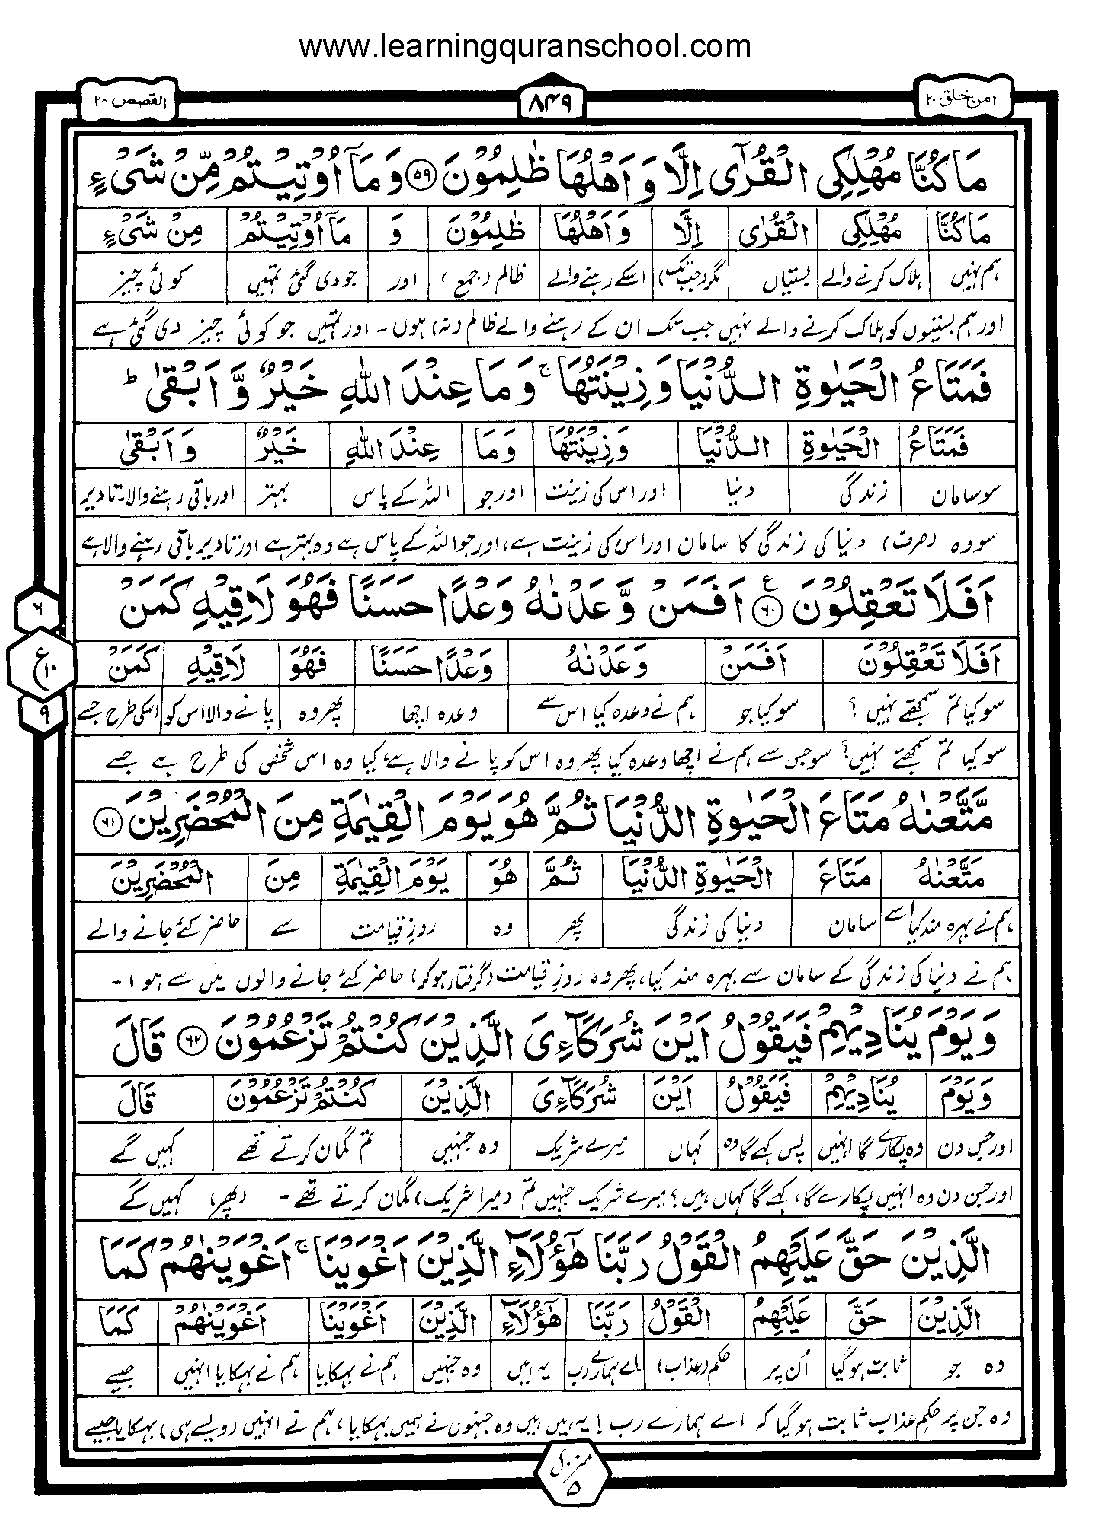 www.learningquranschool.com
امن خلق ۲۰
۸۴۹
القصص ۲۸
مَا كُنَّا مُهْلِكِى الْقُرٰٓى اِلَّا وَاَهْلُهَا ظٰلِمُوْنَ ﴿۵۹﴾ وَمَآ اُوْتِيْتُمْ مِّنْ شَىْءٍ
مَا كُنَّا مُهْلِكِى الْقُرٰى اِلَّا وَاَهْلُهَا ظٰلِمُوْنَ وَ مَآ اُوْتِيْتُمْ مِنْ شَىْءٍ
ہم نہیں ہلاک کرنے والے بستیاں مگر (جب تک) اسکے رہنے والے ظالم (جمع) اور جو دی گئی تمہیں کوئی چیز
اور ہم بستیوں کو ہلاک کرنے والے نہیں جب تک ان کے رہنے والے ظالم (نہ) ہوں - اور تمہیں جو کوئی چیز دی گئی ہے
فَمَتَاعُ الْحَيٰوةِ الدُّنْيَا وَزِيْنَتُهَا ۚ وَمَا عِنْدَ اللّٰهِ خَيْرٌ وَّاَبْقٰى ؕ
فَمَتَاعُ الْحَيٰوةِ الدُّنْيَا وَزِيْنَتُهَا وَمَا عِنْدَ اللّٰهِ خَيْرٌ وَاَبْقٰى
سو سامان زندگی دنیا اور اس کی زینت اور جو اللہ کے پاس بہتر اور باقی رہنے والا۔ تادیر
سو وہ (صرف) دنیا کی زندگی کا سامان اور اس کی زینت ہے، اور جو اللہ کے پاس ہے وہ بہتر ہے اور تادیر باقی رہنے والا ہے
اَفَلَا تَعْقِلُوْنَ ﴿۶۰﴾ ع اَفَمَنْ وَّعَدْنٰهُ وَعْدًا حَسَنًا فَهُوَ لَاقِيْهِ كَمَنْ
۶
ع ۱۰
۹
اَفَلَا تَعْقِلُوْنَ اَفَمَنْ وَعَدْنٰهُ وَعْدًا حَسَنًا فَهُوَ لَاقِيْهِ كَمَنْ
سو کیا تم سمجھتے نہیں؟ سو کیا جو ہم نے وعدہ کیا اس سے وعدہ اچھا پھر وہ پانے والا اس کو اسکی طرح جسے
سو کیا تم سمجھتے نہیں؟ سو جس سے ہم نے اچھا وعدہ کیا پھر وہ اس کو پانے والا ہے، کیا وہ اس شخص کی طرح ہے جسے
مَّتَّعْنٰهُ مَتَاعَ الْحَيٰوةِ الدُّنْيَا ثُمَّ هُوَ يَوْمَ الْقِيٰمَةِ مِنَ الْمُحْضَرِيْنَ ﴿۶۱﴾
مَتَّعْنٰهُ مَتَاعَ الْحَيٰوةِ الدُّنْيَا ثُمَّ هُوَ يَوْمَ الْقِيٰمَةِ مِنَ الْمُحْضَرِيْنَ
ہم نے بہرہ مند کیا اسے سامان دنیا کی زندگی پھر وہ روزِ قیامت سے حاضر کئے جانے والے
ہم نے دنیا کی زندگی کے سامان سے بہرہ مند کیا، پھر وہ روزِ قیامت (گرفتار ہوکر) حاضر کئے جانے والوں میں سے ہوا -
وَيَوْمَ يُنَادِيْهِمْ فَيَقُوْلُ اَيْنَ شُرَكَآءِىَ الَّذِيْنَ كُنْتُمْ تَزْعُمُوْنَ ﴿۶۲﴾ قَالَ
وَيَوْمَ يُنَادِيْهِمْ فَيَقُوْلُ اَيْنَ شُرَكَآءِىَ الَّذِيْنَ كُنْتُمْ تَزْعُمُوْنَ قَالَ
اور جس دن وہ پکارے گا انہیں پس کہے گا وہ کہاں میرے شریک وہ جنہیں تم گمان کرتے تھے کہیں گے
اور جس دن وہ انہیں پکارے گا، کہے گا کہاں ہیں؟ میرے شریک جنہیں تم (میرا شریک) گمان کرتے تھے - (پھر) کہیں گے
الَّذِيْنَ حَقَّ عَلَيْهِمُ الْقَوْلُ رَبَّنَا هٰٓؤُلَآءِ الَّذِيْنَ اَغْوَيْنَا ۚ اَغْوَيْنٰهُمْ كَمَا
الَّذِيْنَ حَقَّ عَلَيْهِمُ الْقَوْلُ رَبَّنَا هٰٓؤُلَآءِ الَّذِيْنَ اَغْوَيْنَا اَغْوَيْنٰهُمْ كَمَا
وہ جو ثابت ہوگیا اُن پر حکم (عذاب) اے ہمارے رب یہ ہیں وہ جنہیں ہم نے بہکایا ہم نے بہکایا انہیں جیسے
وہ جن پر حکم عذاب ثابت ہوگیا کہ اے ہمارے رب! یہ ہیں وہ جنہوں نے ہمیں بہکایا، ہم نے انہیں (ویسے ہی) بہکایا جیسے
منزل ۵